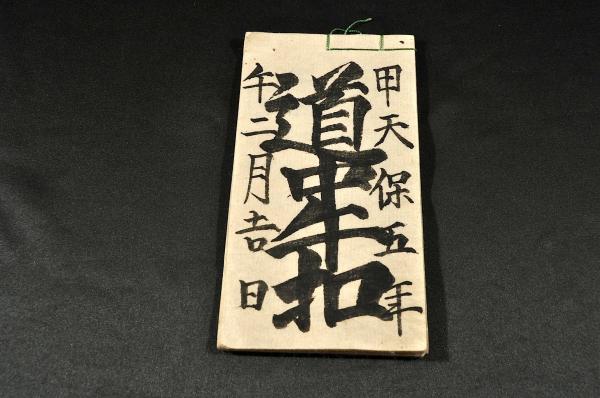 甲天保五年
道中手扣
午二月吉日